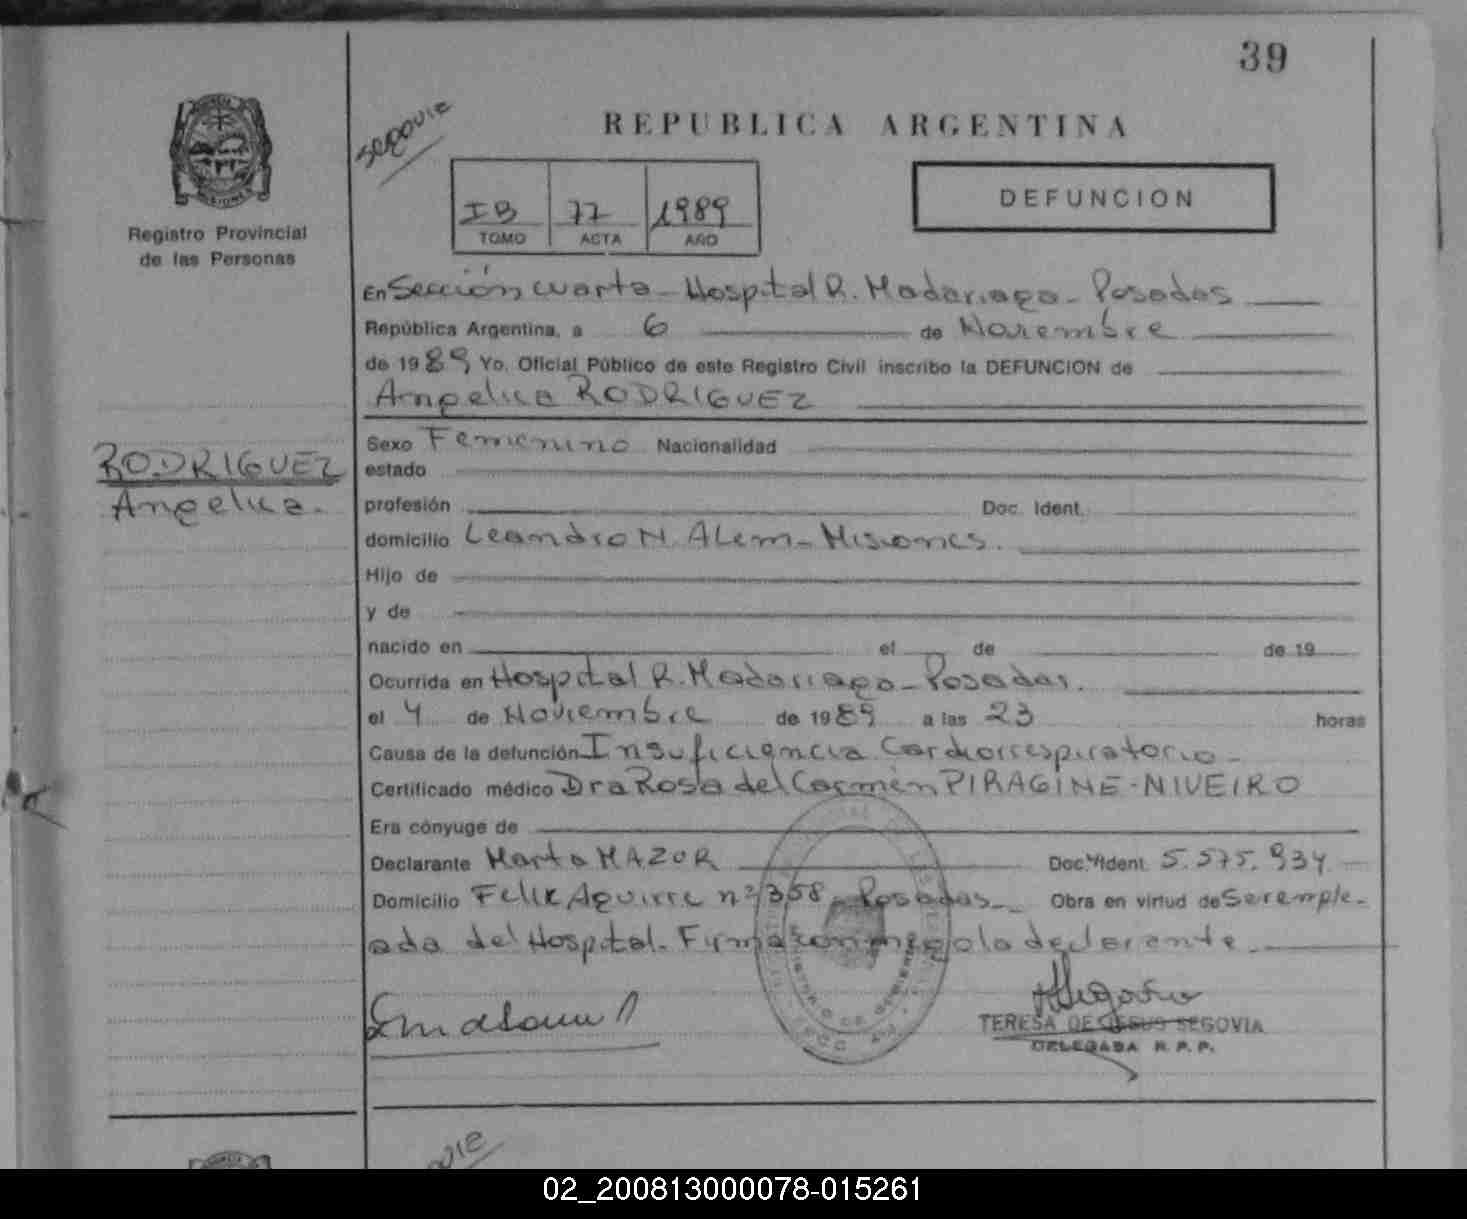 39
Segovia
REPUBLICA ARGENTINA
IB 77 1989
TOMO ACTA AÑO
DEFUNCION
Registro Provincial
de las Personas
En Sección cuarta - Hospital R. Madariaga - Posadas
República Argentina, a 6 de Noviembre
de 1989 Yo, Oficial Público de este Registro Civil inscribo la DEFUNCION de
Angelica RODRIGUEZ
RODRIGUEZ
Angelica.
Sexo Femenino Nacionalidad
estado
profesión Doc. Ident.
domicilio Leandro N. Alem - Misiones.
Hijo de
y de
nacido en el de de 19
Ocurrida en Hospital R. Madariaga - Posadas.
el 4 de Noviembre de 1989 a las 23 horas
Causa de la defunción Insuficiencia Cardiorrespiratorio -
Certificado médico Dra Rosa del Carmen PIRAGINE - NIVEIRO
Era cónyuge de
Declarante Marta MAZUR Doc. Ident. 5.575.934
Domicilio Felix Aguirre nº 358 - Posadas Obra en virtud de Ser emple-
ada del Hospital. Firma conmigo la declarante.
TERESA DE JESUS SEGOVIA
DELEGADA R. P. P.
02_200813000078-015261